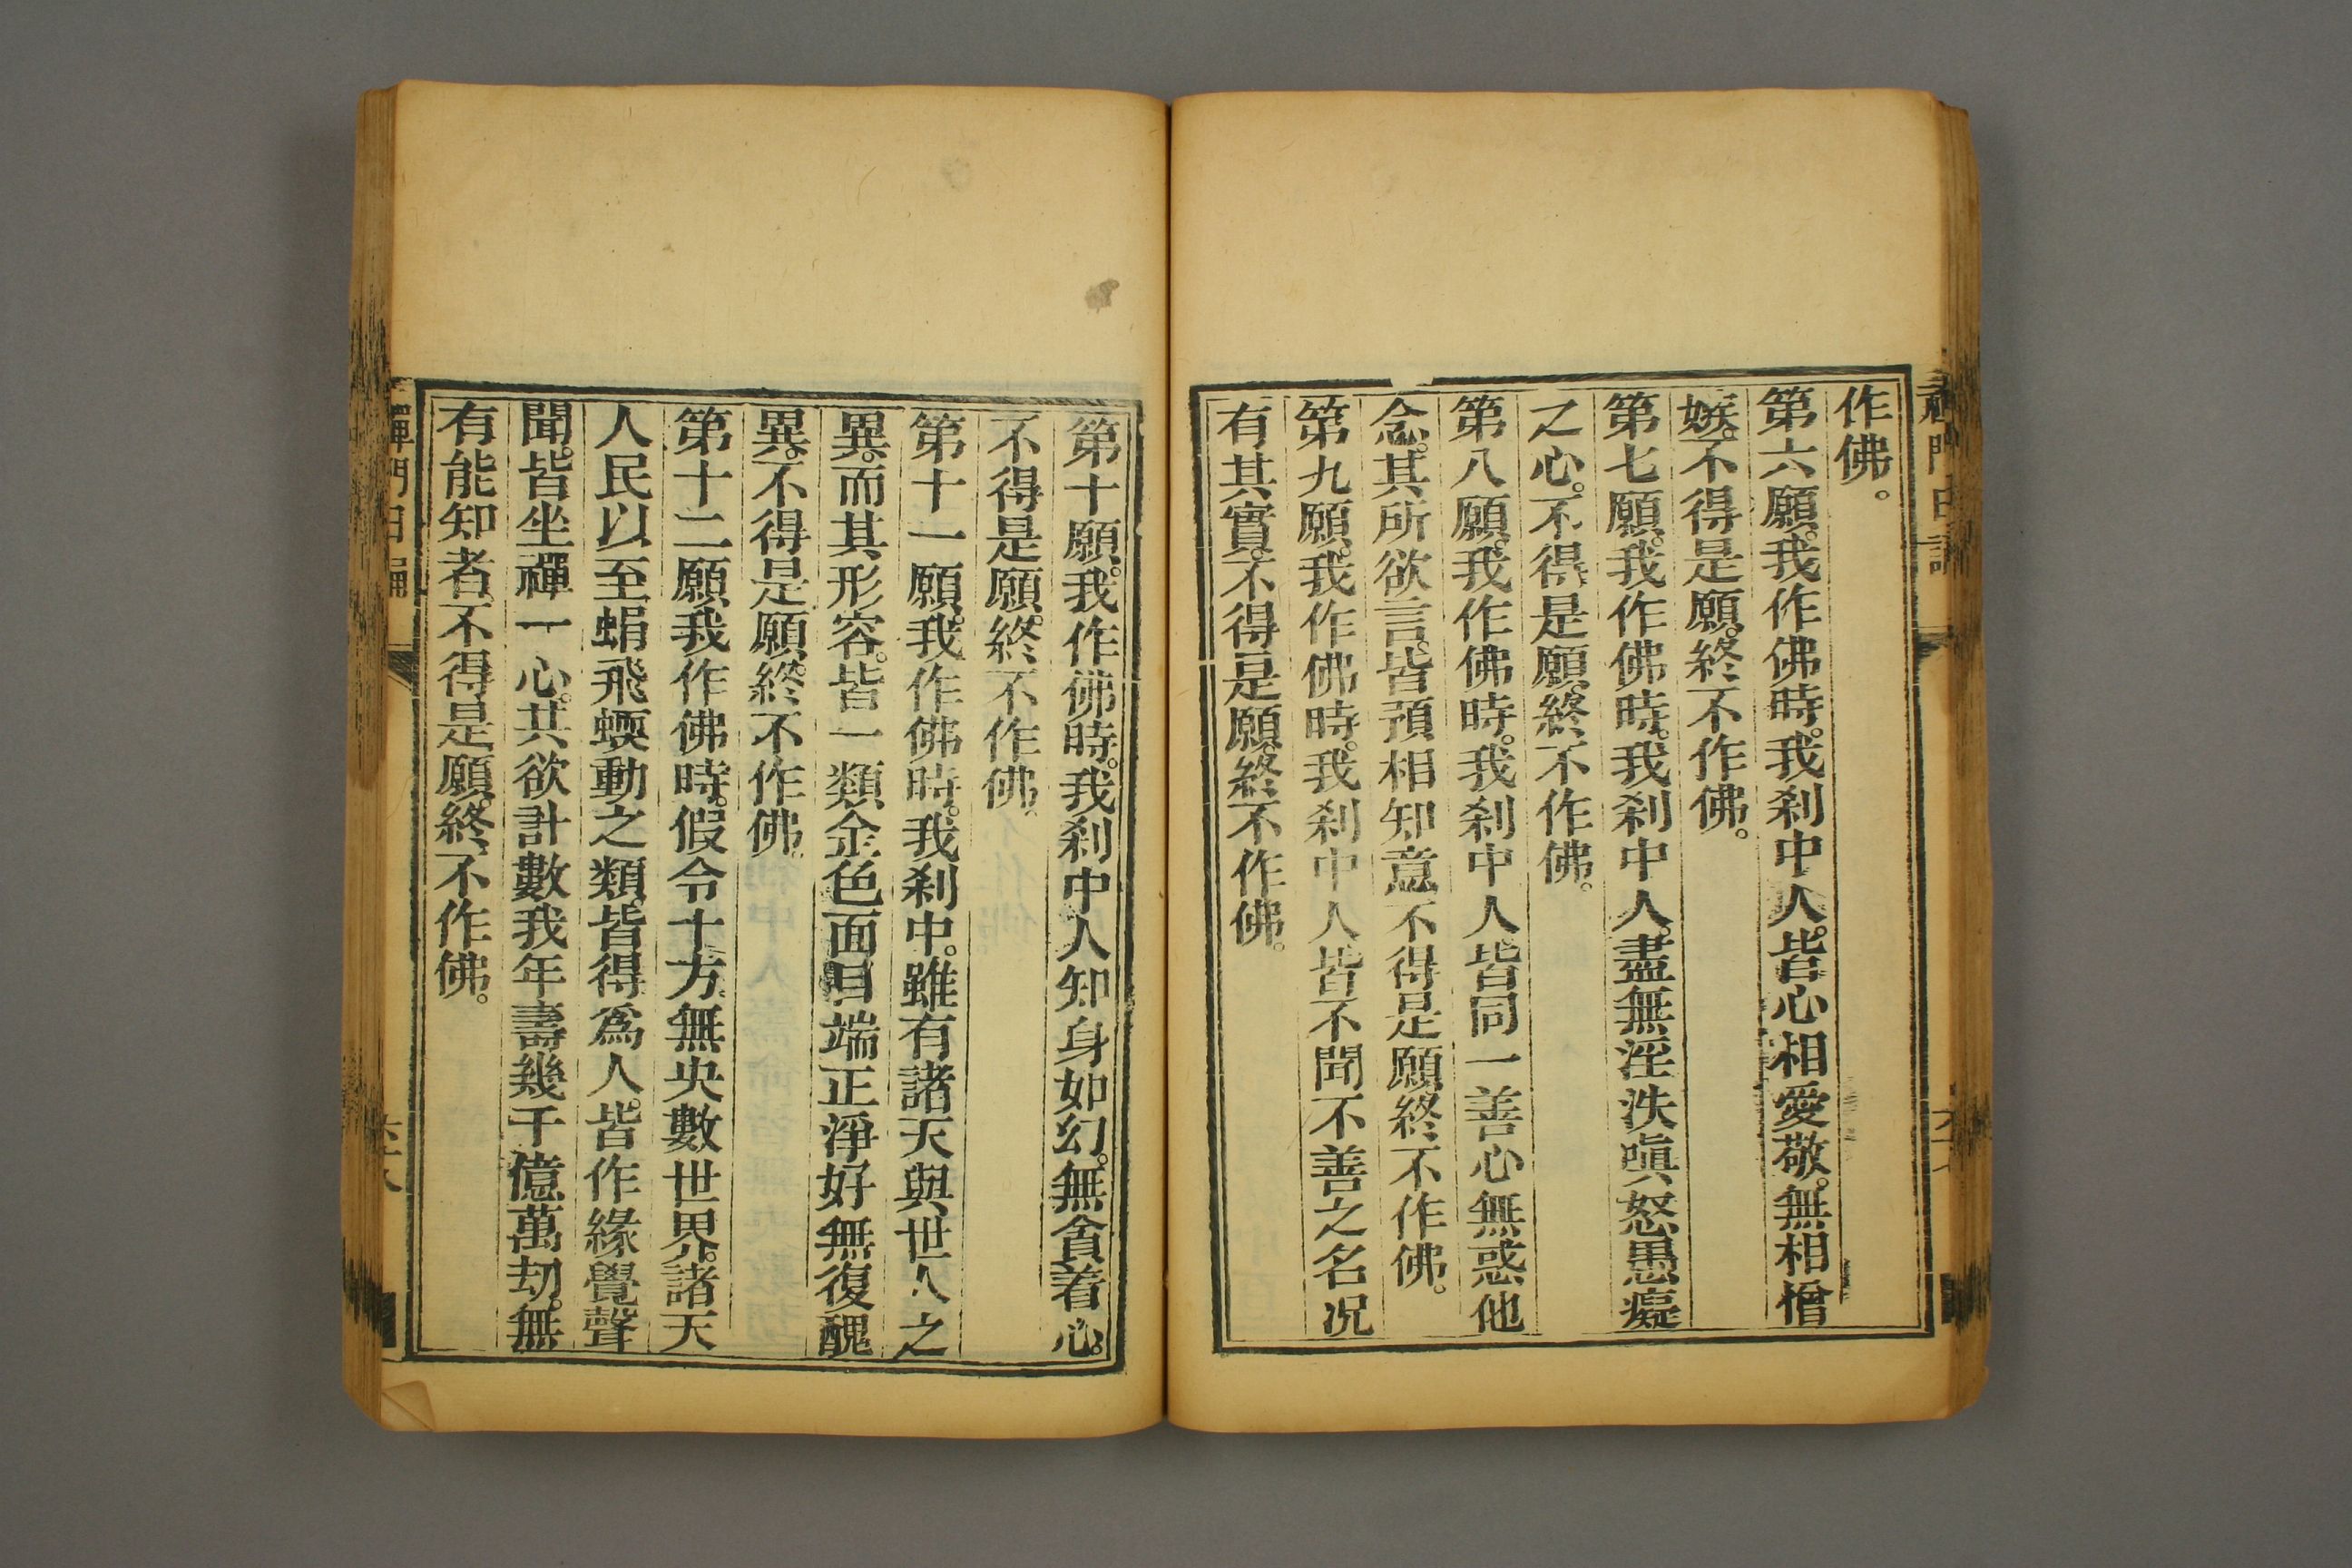 作佛。
第六願。我作佛時。我刹中人。皆心相愛敬。無相憎
嫉。不得是願。終不作佛。
第七願。我作佛時。我刹中人。盡無淫泆嗔怒愚癡
之心。不得是願。終不作佛。
第八願。我作佛時。我刹中人。皆同一善心無惑他
念。其所欲言。皆預相知意不得是願終不作佛。
第九願。我作佛時。我刹中人皆不聞不善之名况
有其實。不得是願。終不作佛。
第十願。我作佛時。我刹中人知身如幻。無貪着心。
不得是願。終不作佛。
第十一願。我作佛時。我刹中。雖有諸天與世人之
異。而其形容。皆一類金色面目端正淨好無復醜
異。不得是願。終不作佛。
第十二願我作佛時。假令十方。無央數世界。諸天
人民以至蜎飛蝡動之類。皆得爲人。皆作緣覺聲
聞。皆坐禪一心。共欲計數我年壽幾千億萬劫。無
有能知者。不得是願。終不作佛。
禪門日誦